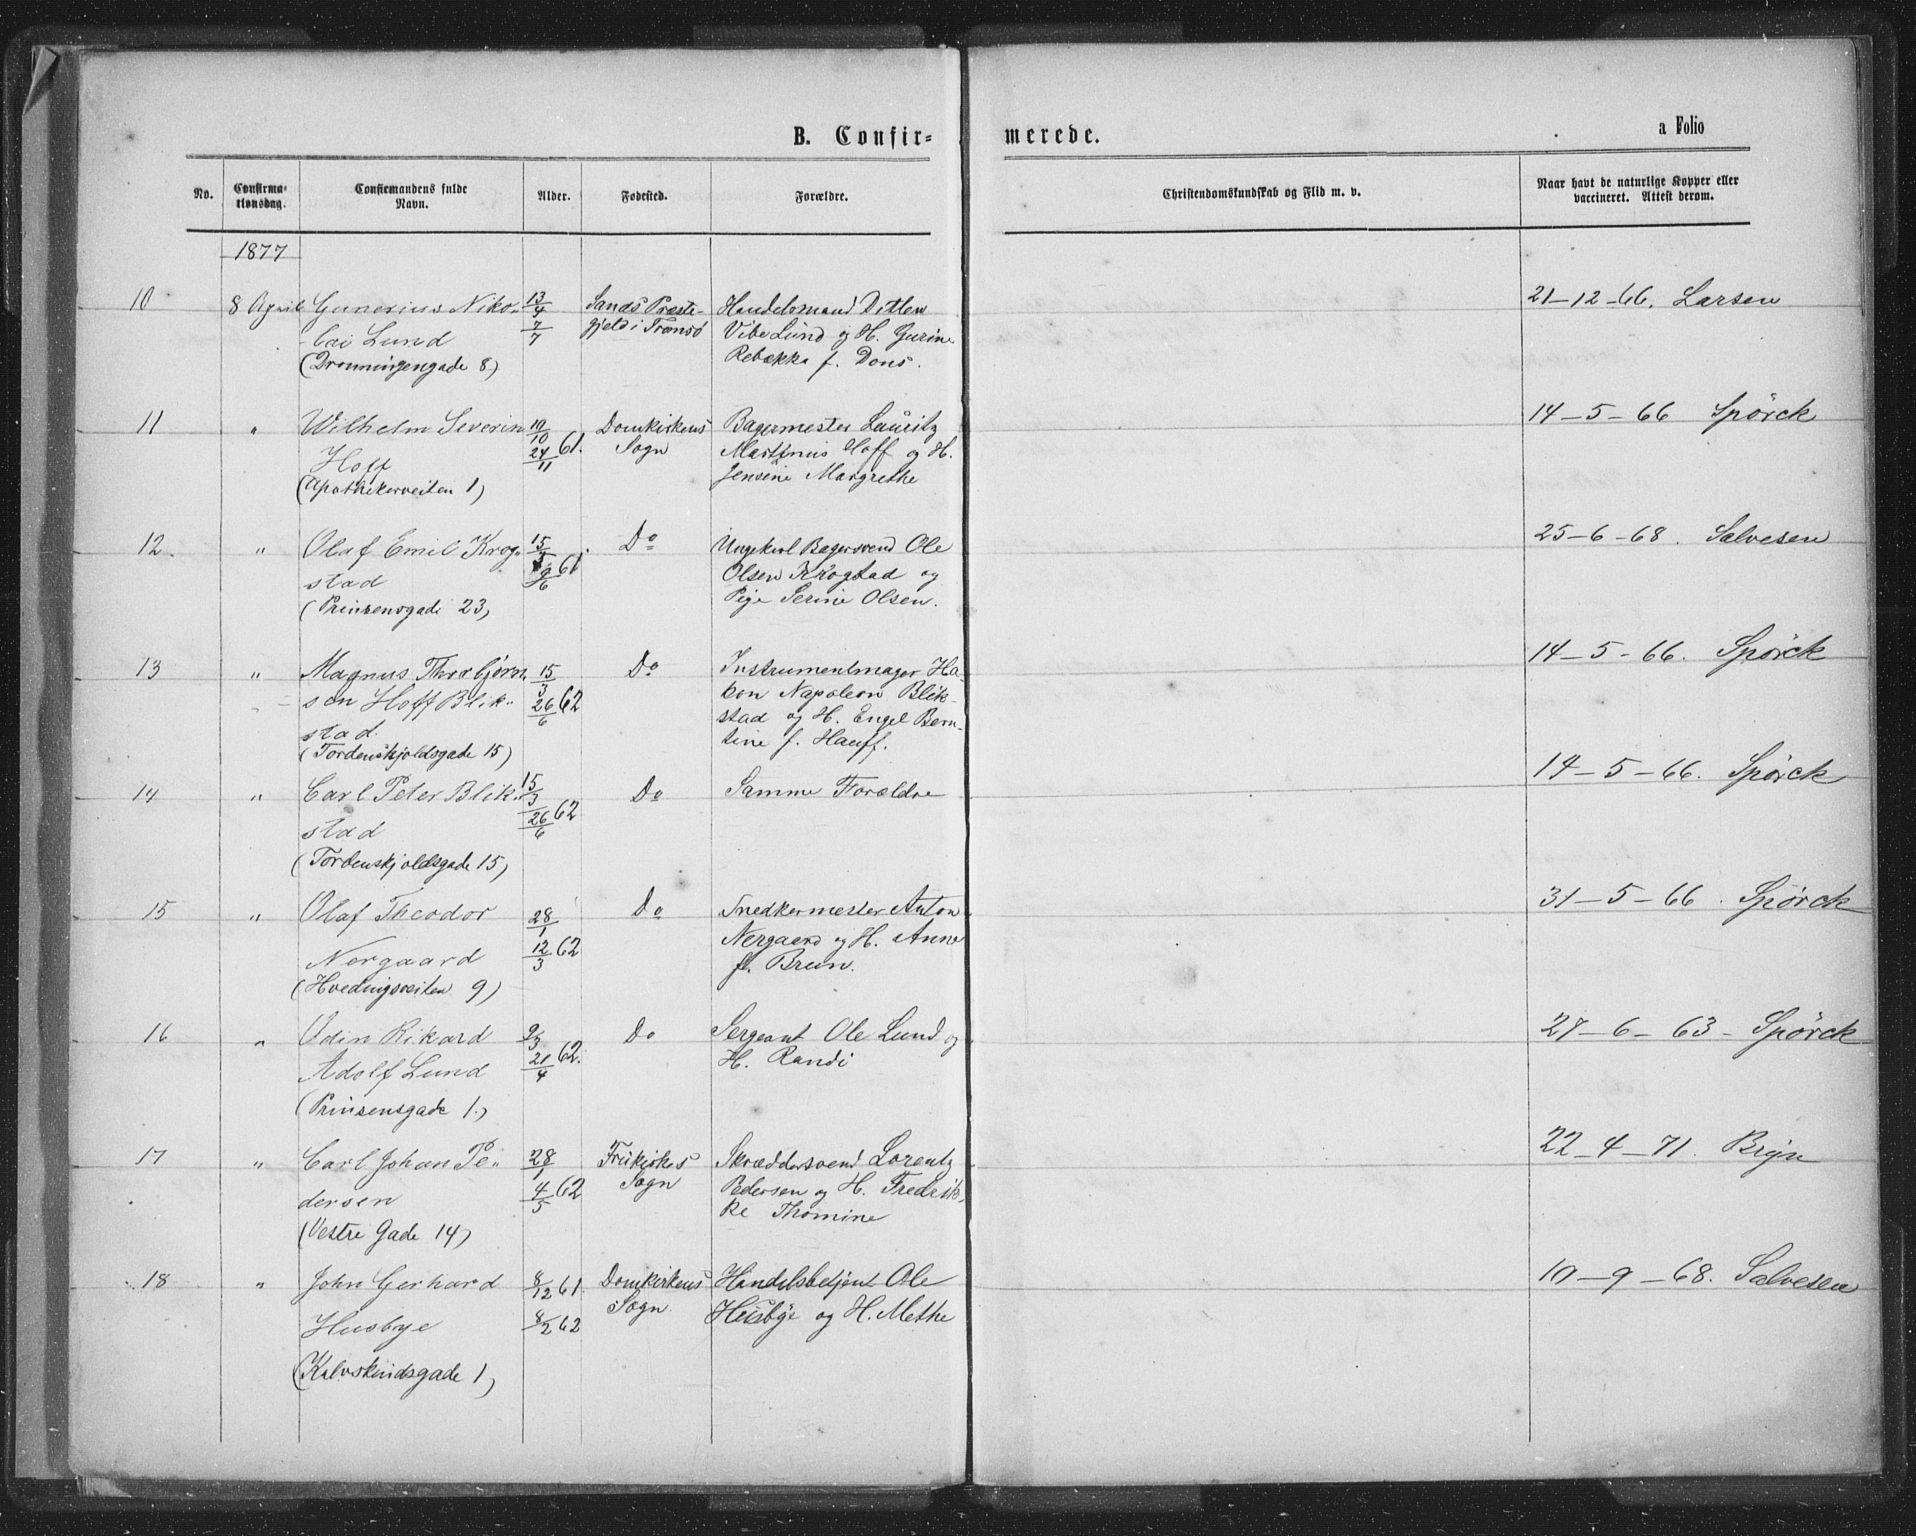 B. Confir=
merede.
a Folio
No.
Confirma-
tionsdag.
Confirmandens fulde
Navn.
Alder.
Fødested.
Forældre.
Christendomskundskab og Flid m. v.
Naar havt de naturlige Kopper eller
vaccineret. Attest derom.
1877
10 8 April Gunerius Niko- 13/4 Sands Præste- Handelsmand Ditlev 21-12-66. Larsen
lai Lund 7/7 gjeld i Tromsö Vibe Lund og H. Gurine
(Dronningensgade 8) Rebækka f. Dons.
11 " Wilhelm Severin 10/10 Domkirkens Bagermester Lauritz 14-5-66 Spörck
Hoff 24/11 61. Sogn Martinus Hoff og H.
(Apothekerveiten 1) Jensine Margrethe
12. " Olaf Emil Krog- 15/3 Do Ungekarl Bagersvend Ole 25-6-68. Salvesen
stad /6 61 Olsen Krogstad og
(Prinsensgade 23) Pige Serine Olsen.
13 " Magnus Thorbjörn- 15/3 Do Instrumentmager Ha- 14-5-66. Spörck
sen Hoff Blik- 26/6 62 kon Napoleon Blik-
stad. stad og H. Engel Bern-
(Tordenskjoldsgade 15) tine f. Hauff.
14 " Carl Peter Blik- 15/3 Do Samme Forældre 14-5-66. Spörck
stad 26/6 62
(Tordenskjoldsgade 15)
15 " Olaf Theodor 28/1 Do Snedkermester Anton 31-5-66. Spörck
Nergaard 12/3 62 Nergaard og H. Anne
(Hvedingsveiten 9) f. Bruun.
16 " Odin Rikard 9/3 Do Sergeant Ole Lund og 27-6-63- Spörck
Adolf Lund 21/4 62. H. Randi
(Prinsensgade 1.)
17 " Carl Johan Pe- 28/1 Fruekirkes Skræddersvend Lorentz 22-4-71. Bryn
dersen 4/5 62 Sogn Pedersen og H. Fredrik-
(Vestre Gade 14) ke Thomine
18 " John Gerhard 8/12 61. Domkirkens Handelsbetjent Ole 10-9-68. Salvesen
Husbye 8/2 62 Sogn Husbye og H. Methe
(Kalvskindsgade 1)